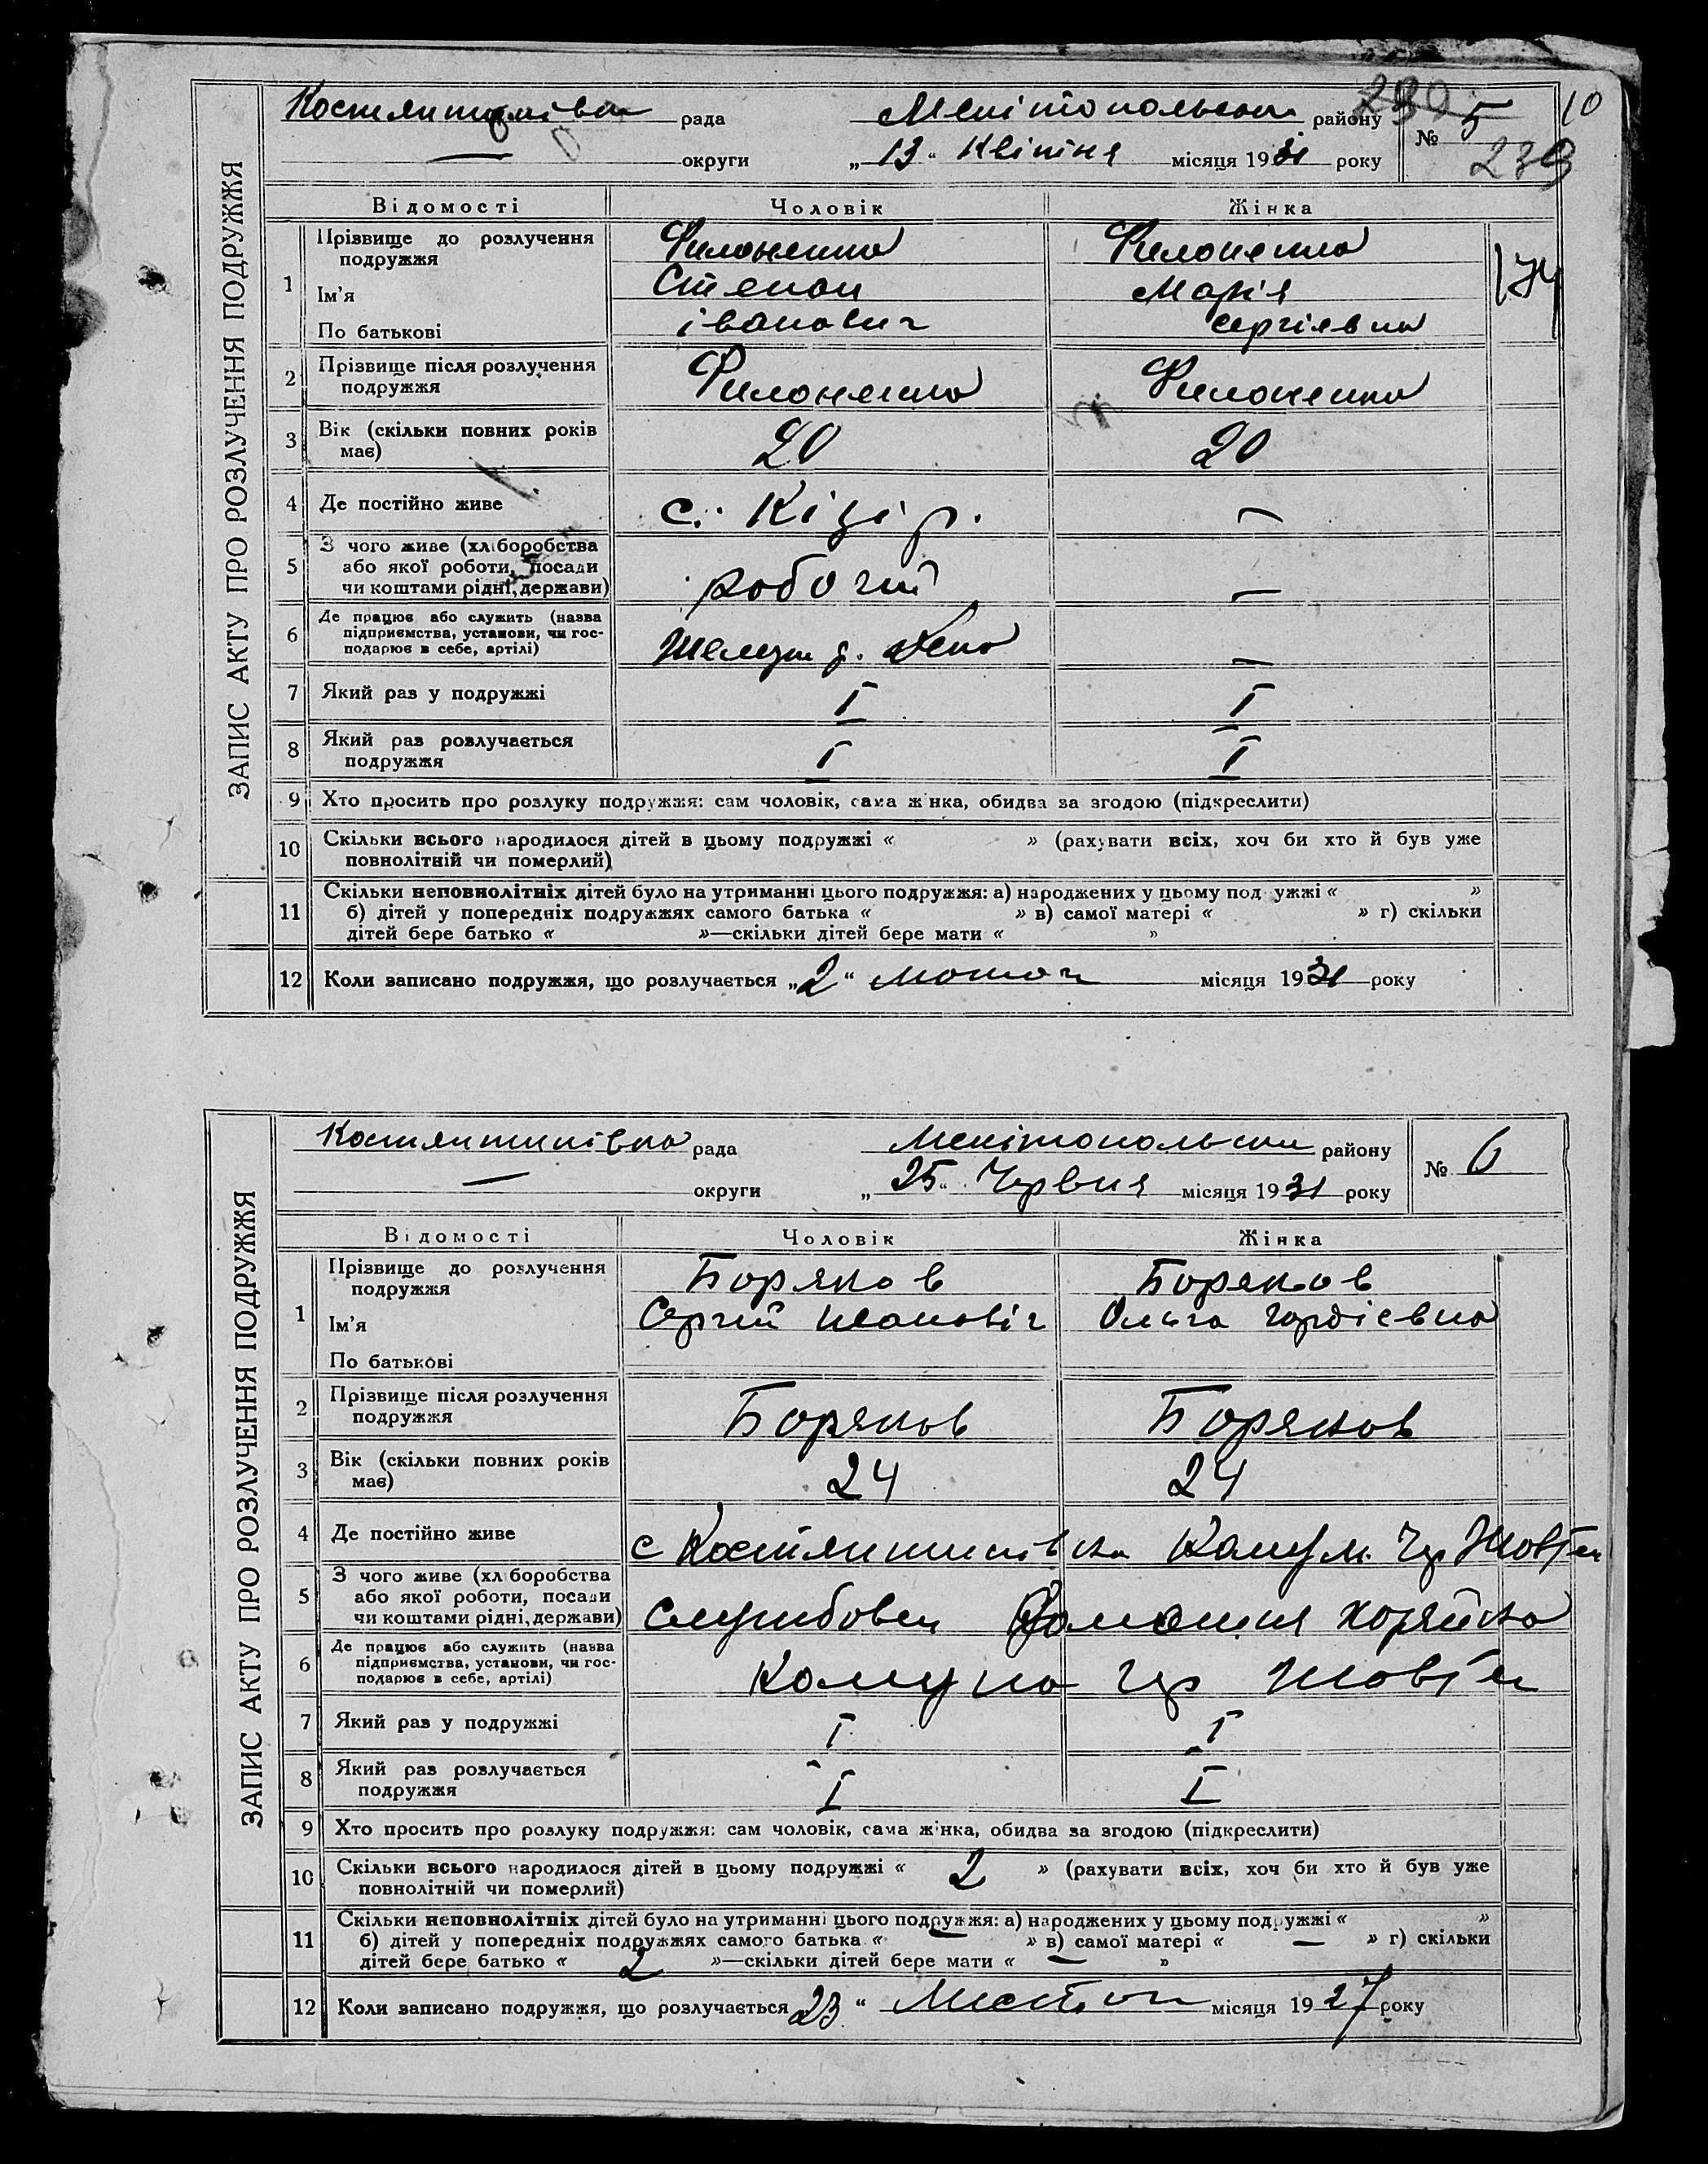 ЗАПИС АКТУ ПРО РОЗЛУЧЕННЯ ПОДРУЖЖЯ
Костянтинівка рада Мелітопольськ району № 5 10
округи „13“ Квітня місяця 1931 року 239
Відомості Чоловік Жінка
1 Прізвище до розлучення подружжя Филоненко Филоненко 174
Ім'я Степан Марія
По батькові іванович сергіявна
2 Прізвище після розлучення подружжя Филоненко Филоненко
3 Вік (скільки повних років має) 20 20
4 Де постійно живе с. Кізір. —
5 З чого живе (хліборобства або якої роботи, посади чи коштами рідні, держави) робочий —
6 Де працює або служить (назва підприємства, установи, чи господарює в себе, артілі) д. Депо —
7 Який раз у подружжі I I
8 Який раз розлучається подружжя I I
9 Хто просить про розлуку подружжя: сам чоловік, сама жінка, обидва за згодою (підкреслити)
10 Скільки всього народилося дітей в цьому подружжі « » (рахувати всіх, хоч би хто й був уже
повнолітній чи померлий)
11 Скільки неповнолітніх дітей було на утриманні цього подружжя: а) народжених у цьому подружжі « »
б) дітей у попередніх подружжях самого батька « » в) самої матері « » г) скільки
дітей бере батько « »—скільки дітей бере мати « »
12 Коли записано подружжя, що розлучається „2“ місяця 1931 року
ЗАПИС АКТУ ПРО РОЗЛУЧЕННЯ ПОДРУЖЖЯ
Костянтинівка рада Мелітопольськ району № 6
округи „25“ Червня місяця 1931 року
Відомості Чоловік Жінка
1 Прізвище до розлучення подружжя Боряков Боряков
Ім'я Сергій Іванович Ольга Гордієвна
По батькові
2 Прізвище після розлучення подружжя Боряков Боряков
3 Вік (скільки повних років має) 24 24
4 Де постійно живе с Костянтинівка Комум. Чер Жовтен
5 З чого живе (хліборобства або якої роботи, посади чи коштами рідні, держави) службовец Домашня хозяйка
6 Де працює або служить (назва підприємства, установи, чи господарює в себе, артілі) Комуна Чер Жовтен
7 Який раз у подружжі I I
8 Який раз розлучається подружжя I I
9 Хто просить про розлуку подружжя: сам чоловік, сама жінка, обидва за згодою (підкреслити)
10 Скільки всього народилося дітей в цьому подружжі « 2 » (рахувати всіх, хоч би хто й був уже
повнолітній чи померлий)
11 Скільки неповнолітніх дітей було на утриманні цього подружжя: а) народжених у цьому подружжі « »
б) дітей у попередніх подружжях самого батька « — » в) самої матері « — » г) скільки
дітей бере батько « 2 »—скільки дітей бере мати « — »
12 Коли записано подружжя, що розлучається 23 “ місяця 1927 року